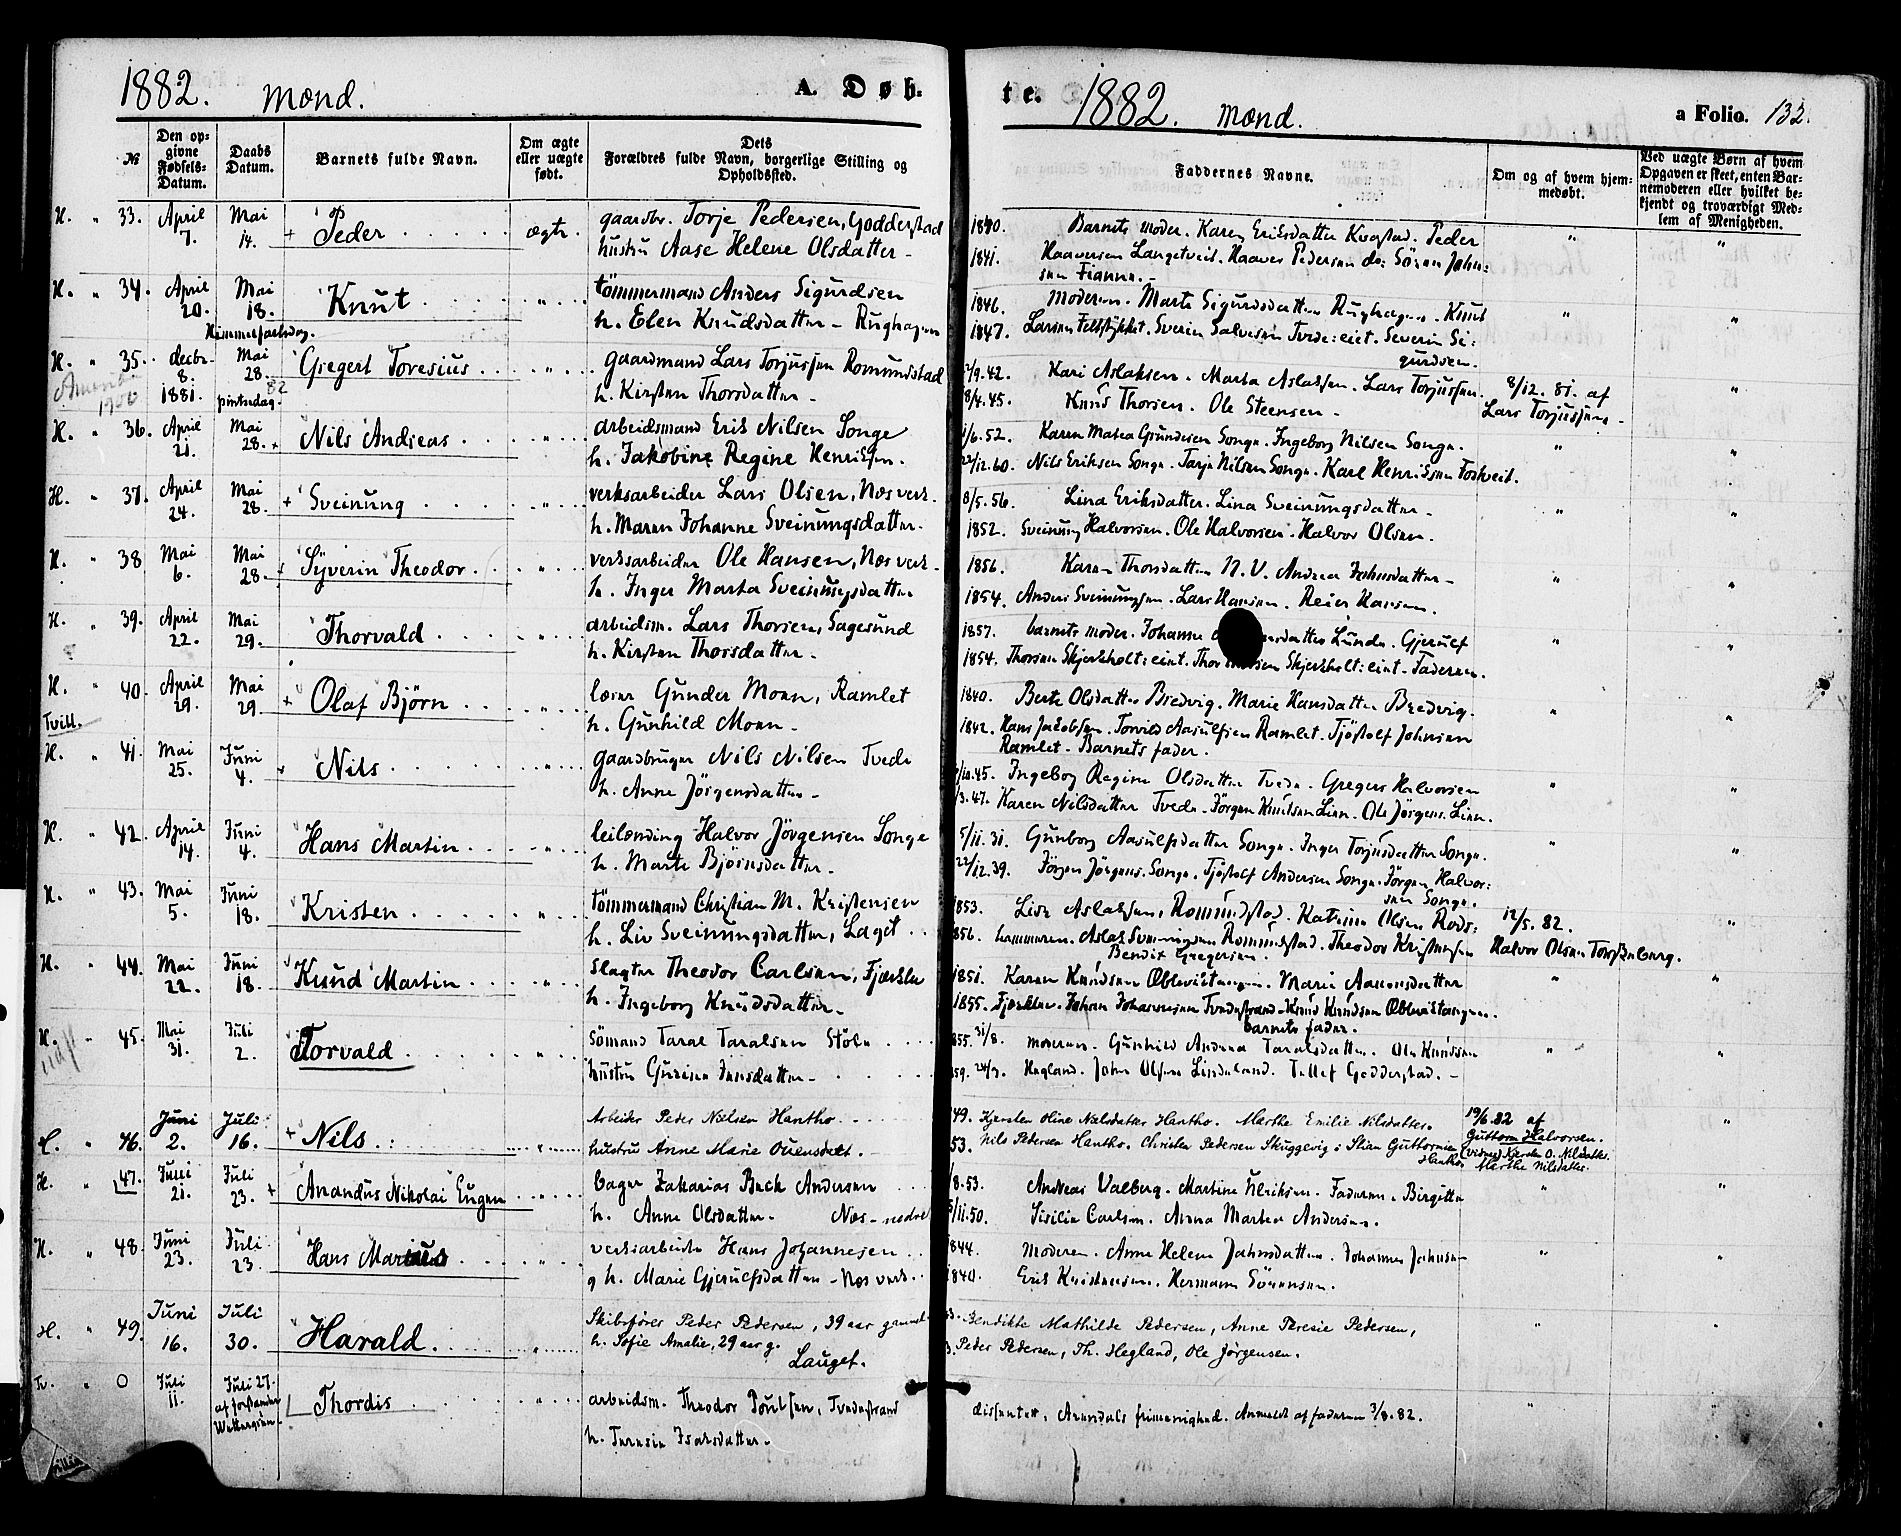 1882. Mænd. A. Døb-
№ Den opgivne Fødsels-Datum. Daabs Datum. Barnets fulde Navn. Om ægte eller uægte født. Dets Forældres fulde Navn, borgerlige Stilling og Opholdssted.
H. " 33. April 7. Mai 14. + Peder ægte. gaardbr. Torje Pedersen, Godderstad
hustru Aase Helene Olsdatter -
H. " 34. April 20. Mai 18. Knut " tömmermand Anders Sigurdsen
Himmelfartsdag. h. Elen Knudsdatter - Rughagen
H. " 35. decbr. 8. 1881. Mai 28. 82 pintsedag. Gregert Toresius " gaardmand Lars Torjussen Romundstad
h. Kirsten Thorsdatter -
H. " 36. April 21. Mai 28. + Nils Andreas " arbeidsmand Erik Nilsen Songe
h. Jakobine Regine Henriksen.
H. " 37. April 24. Mai 28. + Sveinung " verksarbeider Lars Olsen, Næs verk.
h. Maren Johanne Sveinungsdatter.
H. " 38 Mai 6. Mai 28. + Syverin Theodor " verksarbeider Ole Hansen, Næs verk.
h. Inger Marta Sveinungsdatter
H. " 39. April 22. Mai 29. Thorvald " arbeidsm. Lars Thorsen, Sagesund
h. Kirsten Thorsdatter -
H. " 40. April 29. Mai 29. + Olaf Björn " lærer Gunder Moen, Ramlet
Tvill. h. Gunhild Moen -
H. " 41. Mai 25. Juni 4. + Nils " gaardbruger Nils Nilsen Tvede
h. Anne Jörgensdatter -
H. " 42. April 14. Juni 4. Hans Martin " leilænding Halvor Jörgensen Songe
h. Marte Bjørnsdatter.
H. " 43. Mai 5. Juni 18. Kristen " tömmermand Christian M. Kristensen
h. Liv Sveinungsdatter, Laget
H. " 44. Mai 22. Juni 18. Knud Martin " slagter Theodor Carlsen, Fjærkleu
h. Ingeborg Knudsdatter -
H. " 45. Mai 31. Juli 2. Torvald " Sömand Taral Taralsen Stöle
hustru Gurine Jensdatter -
" 46. Juni 2. Juli 16. + Nils " Arbeider Peder Nielsen Hantho
hustru Anne Marie Ouensdatt.
H. " 47. Juni 21. Juli 23. + Anandus Nikolai Eugen " bager Zakarias Bech Andersen
h. Anne Olsdatter - Næs - nedre
H. " 48. Juni 23. Juli 23. Hans Marius " verksarbeider Hans Johannesen
g h. Marie Gjerulfsdatter - Næs verk.
H. " 49. Juni 16. Juli 30. Harald " Skibsfører Peder Pedersen, 39 aar gammel
h. Sofie Amalie, 29 aar g.
Lauget.
Tv. " O Juli 11. Juli 27. af forstander Wettergren. Thordis " arbeidsm. Theodor Poulsen, Tvedestrand
h. Teresie Isaksdatter -
te. 1882. Mænd. a Folio. 132.
Faddernes Navne. Om og af hvem hjemmedøbt. Ved uægte Børn af hvem Opgaven er skeet, enten Barnemoderen eller hvilket bekjendt og troværdigt Medlem af Menigheden.
1840. Barnets moder. Karen Eriksdatter Kvastad. Peder " "
1841. Haaversen Langetveit. Haaver Pedersen do: Sören John:
sen Fianne. -
1846. Moderen. Marte Sigurdsdatter Rughagen. Knut " "
1847. Larsen Feltstykket. Sverin Salvesen Tvede:eiet. Severin Si:
gurdsen.
/9.42. Kari Aslaksen. Marta Aslaksen. Lars Torjussen. 8/12. 81. af "
8/4.45. Knud Thorsen. Ole Steensen - Lars Torjussen -
1/6.52. Karen Matea Gundersen Songe. Ingeborg Nilsen Songe. " "
22/12.60. Nils Eriksen Songe. Tarje Nilsen Songe. Karl Henriksen Toskveit.
8/5.56. Lina Eriksdatter. Lina Sveinungsdatter - " "
1852. Sveinung Halvorsen. Ole Halvorsen. Halvor Olsen.
1856. Karen Thorsdatter N. V. Andrea Johnsdatter - " "
1854. Anders Sveinungsen. Lars Hansen. Reier Hansen.
1857. barnets moder. Johanne datter Lunde. Gjerulf " "
1854. Thorsen Skjerkholt:eiet. Thor Skjerkholt:eiet. Faderen.
1840. Berte Olsdatter Bredvig. Marie Hansdatter Bredvig. " "
1842. Hans Jakobsen. Torvild Aasulfsen Ramlet. Tjöstolf Johnsen
Ramlet - Barnets fader.
/10.45. Ingeborg Regine Olsdatter Tvede. Gregers Halvorsen " "
/3.47. Karen Nilsdatter Tvede. Jörgen Knutsen Lien. Ole Jörgens. Lien.
5/11.31. Gunborg Aasulfsdatter Songe. Inger Torjusdatter Songe. " "
22/12.39. Jörgen Jörgens. Songe. Tjöstolf Andersen Songe. Jörgen Halvor:
sen Songe.
1853. Lise Aslaksen, Romundstad. Katrine Olsen Rods: 12/5. 82. "
856. hammeren. Aslak Sveinungsen Romundstad. Theodor Kristensen Halvor Olsen Torskeberg.
Bendix Gregersen.
1851. Karen Knudsen Oblevistangen. Marie Aanensdatter " "
1855. Fjærkleu. Johan Johannesen Tvedestrand. Knud Knudsen Oblevistangen.
barnets fader.
855. 31/8. moderen. Gunhild Andrea Taralsdatter. Ole Knudsen " "
59. 24/7. Hegland. John Olsen Lindeland. Tellef Godderstad. -
49. Kjersten Oline Nielsdatter Hantho. Marthe Emilie Nilsdatter. 19/6.82 af "
53. Nils Pedersen Hantho. Christen Pedersen Skuggevig. Stian Guttormsen Guttorm Halvorsen.
Hantho (vidner) Kjersten O. Nilsdatter.
Marthe Nilsdatter.
/8.53. Andreas Valberg. Martine Ulriksen. Faderen. Birgitte " "
/11.50. Sisilie Carlsen. Anna Martea Andersen.
844. Moderen. Anne Helene Jahnsdatter. Johannes Johnsen " "
1840. Erik Kristensen. Hermann Sörensen.
Bendikte Mathilde Pedersen, Anne Theresie Pedersen, " "
Peder Pedersen, Th. Hegland, Ole Jørgensen.
dissenter, Arendals frimenighed. Anmeldt af faderen 3/8.82. "